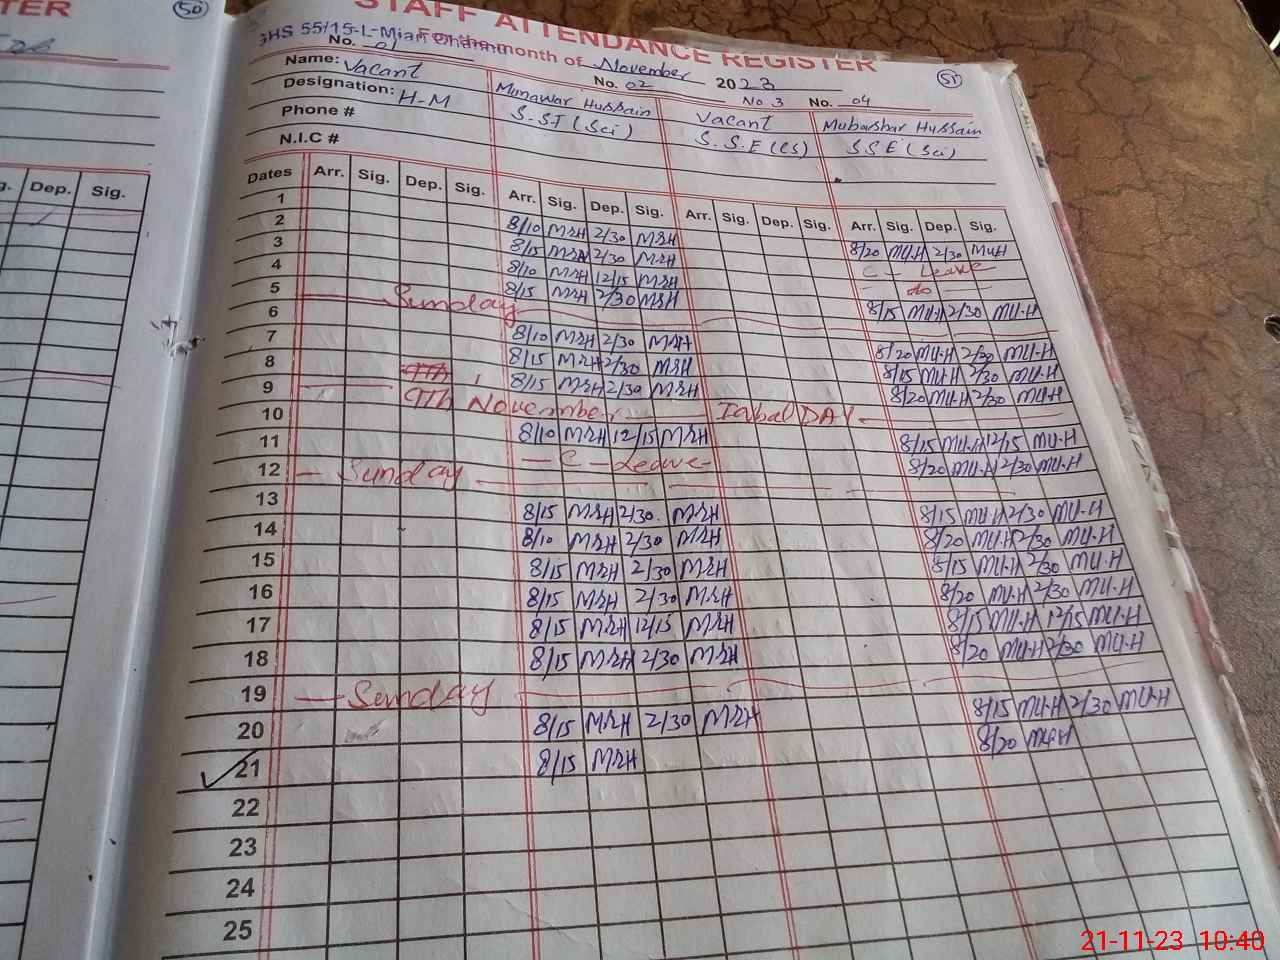 TER
50
STAFF ATTENDANCE REGISTER
GHS 55/15-L-Mian Channu
For the month of November 2023
51
No. 01 No. 02 No 3 No. 04
Name: Vacant Munawar Hussain Vacant Mubarshar Hussain
Designation: H-M S.ST (Sci) S.S.E (CS) SSE (Sci)
Phone #
N.I.C #
Dates Arr. Sig. Dep. Sig. Arr. Sig. Dep. Sig. Arr. Sig. Dep. Sig. Arr. Sig. Dep. Sig.
g. Dep. Sig.
1 8/10 MRH 2/30 MRH 8/20 MU.H 2/30 MU.H
2 8/15 MRH 2/30 MRH C - Leave
3 8/10 MRH 12/15 MRH do
4 8/15 MRH 2/30 MRH 8/15 MU.H 2/30 MU.H
5 Sunday
6 8/10 MRH 2/30 MRH 8/20 MU.H 2/30 MU.H
7 8/15 MRH 2/30 MRH 8/15 MU.H 2/30 MU.H
8 8/15 MRH 2/30 MRH 8/20 MU.H 2/30 MU.H
9 9Th November Iqbal DAY
10 8/10 MRH 12/15 MRH 8/15 MU.H 12/15 MU.H
11 - C - Leave 8/20 MU.H 2/30 MU.H
12 - Sunday
13 8/15 MRH 2/30 MRH 8/15 MU.H 2/30 MU.H
14 8/10 MRH 2/30 MRH 8/20 MU.H 2/30 MU.H
15 8/15 MRH 2/30 MRH 8/15 MU.H 2/30 MU.H
16 8/15 MRH 2/30 MRH 8/20 MU.H 2/30 MU.H
17 8/15 MRH 12/15 MRH 8/15 MU.H 12/15 MU.H
18 8/15 MRH 2/30 MRH 8/20 MU.H 2/30 MU.H
19 - Sunday
20 8/15 MRH 2/30 MRH 8/15 MU.H 2/30 MU.H
21 8/15 MRH 8/20 MU.H
22
23
24
25
21-11-23 10:40